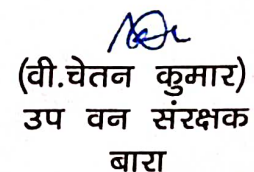 (वी.चेतन कुमार)
उप वन संरक्षक
बारा